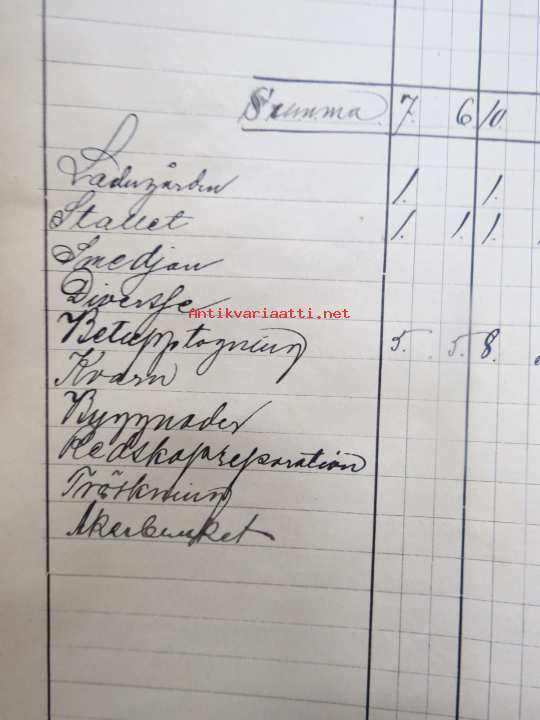 Summa 7. 6 10.
Ladugården 1. 1.
Stallet 1. 1. 1.
Smedjan
Diverse
Antikvariaatti.net
Betupptagning 5. 5. 8.
Kvarn
Byggnader
Redskapsreparation
Tröskning
Åkerbruket